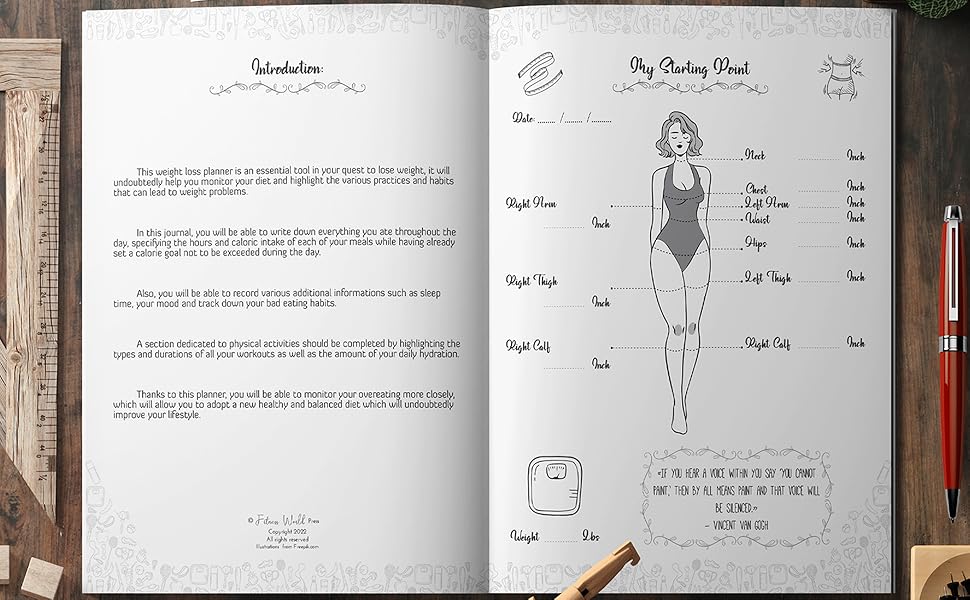 Introduction:
This weight loss planner is an essential tool in your quest to lose weight, it will
undoubtedly help you monitor your diet and highlight the various practices and habits
that can lead to weight problems.
In this journal, you will be able to write down everything you ate throughout the
day, specifying the hours and caloric intake of each of your meals while having already
set a calorie goal not to be exceeded during the day.
Also, you will be able to record various additional informations such as sleep
time, your mood and track down your bad eating habits.
A section dedicated to physical activities should be completed by highlighting the
types and durations of all your workouts as well as the amount of your daily hydration.
Thanks to this planner, you will be able to monitor your overeating more closely,
which will allow you to adopt a new healthy and balanced diet which will undoubtedly
improve your lifestyle.
© Fitness World Press
Copyright 2022
All rights reserved
Illustrations from Freepik.com
My Starting Point
Date: ........ /........ /.........
Neck ............ Inch
Chest ............ Inch
Left Arm ............ Inch
Waist ............ Inch
Hips ............ Inch
Right Arm
............ Inch
Left Thigh ............ Inch
Right Thigh
............ Inch
Right Calf ............ Inch
Right Calf
............ Inch
Weight ............ Lbs
«IF YOU HEAR A VOICE WITHIN YOU SAY 'YOU CANNOT
PAINT,' THEN BY ALL MEANS PAINT AND THAT VOICE WILL
BE SILENCED.»
– VINCENT VAN GOGH